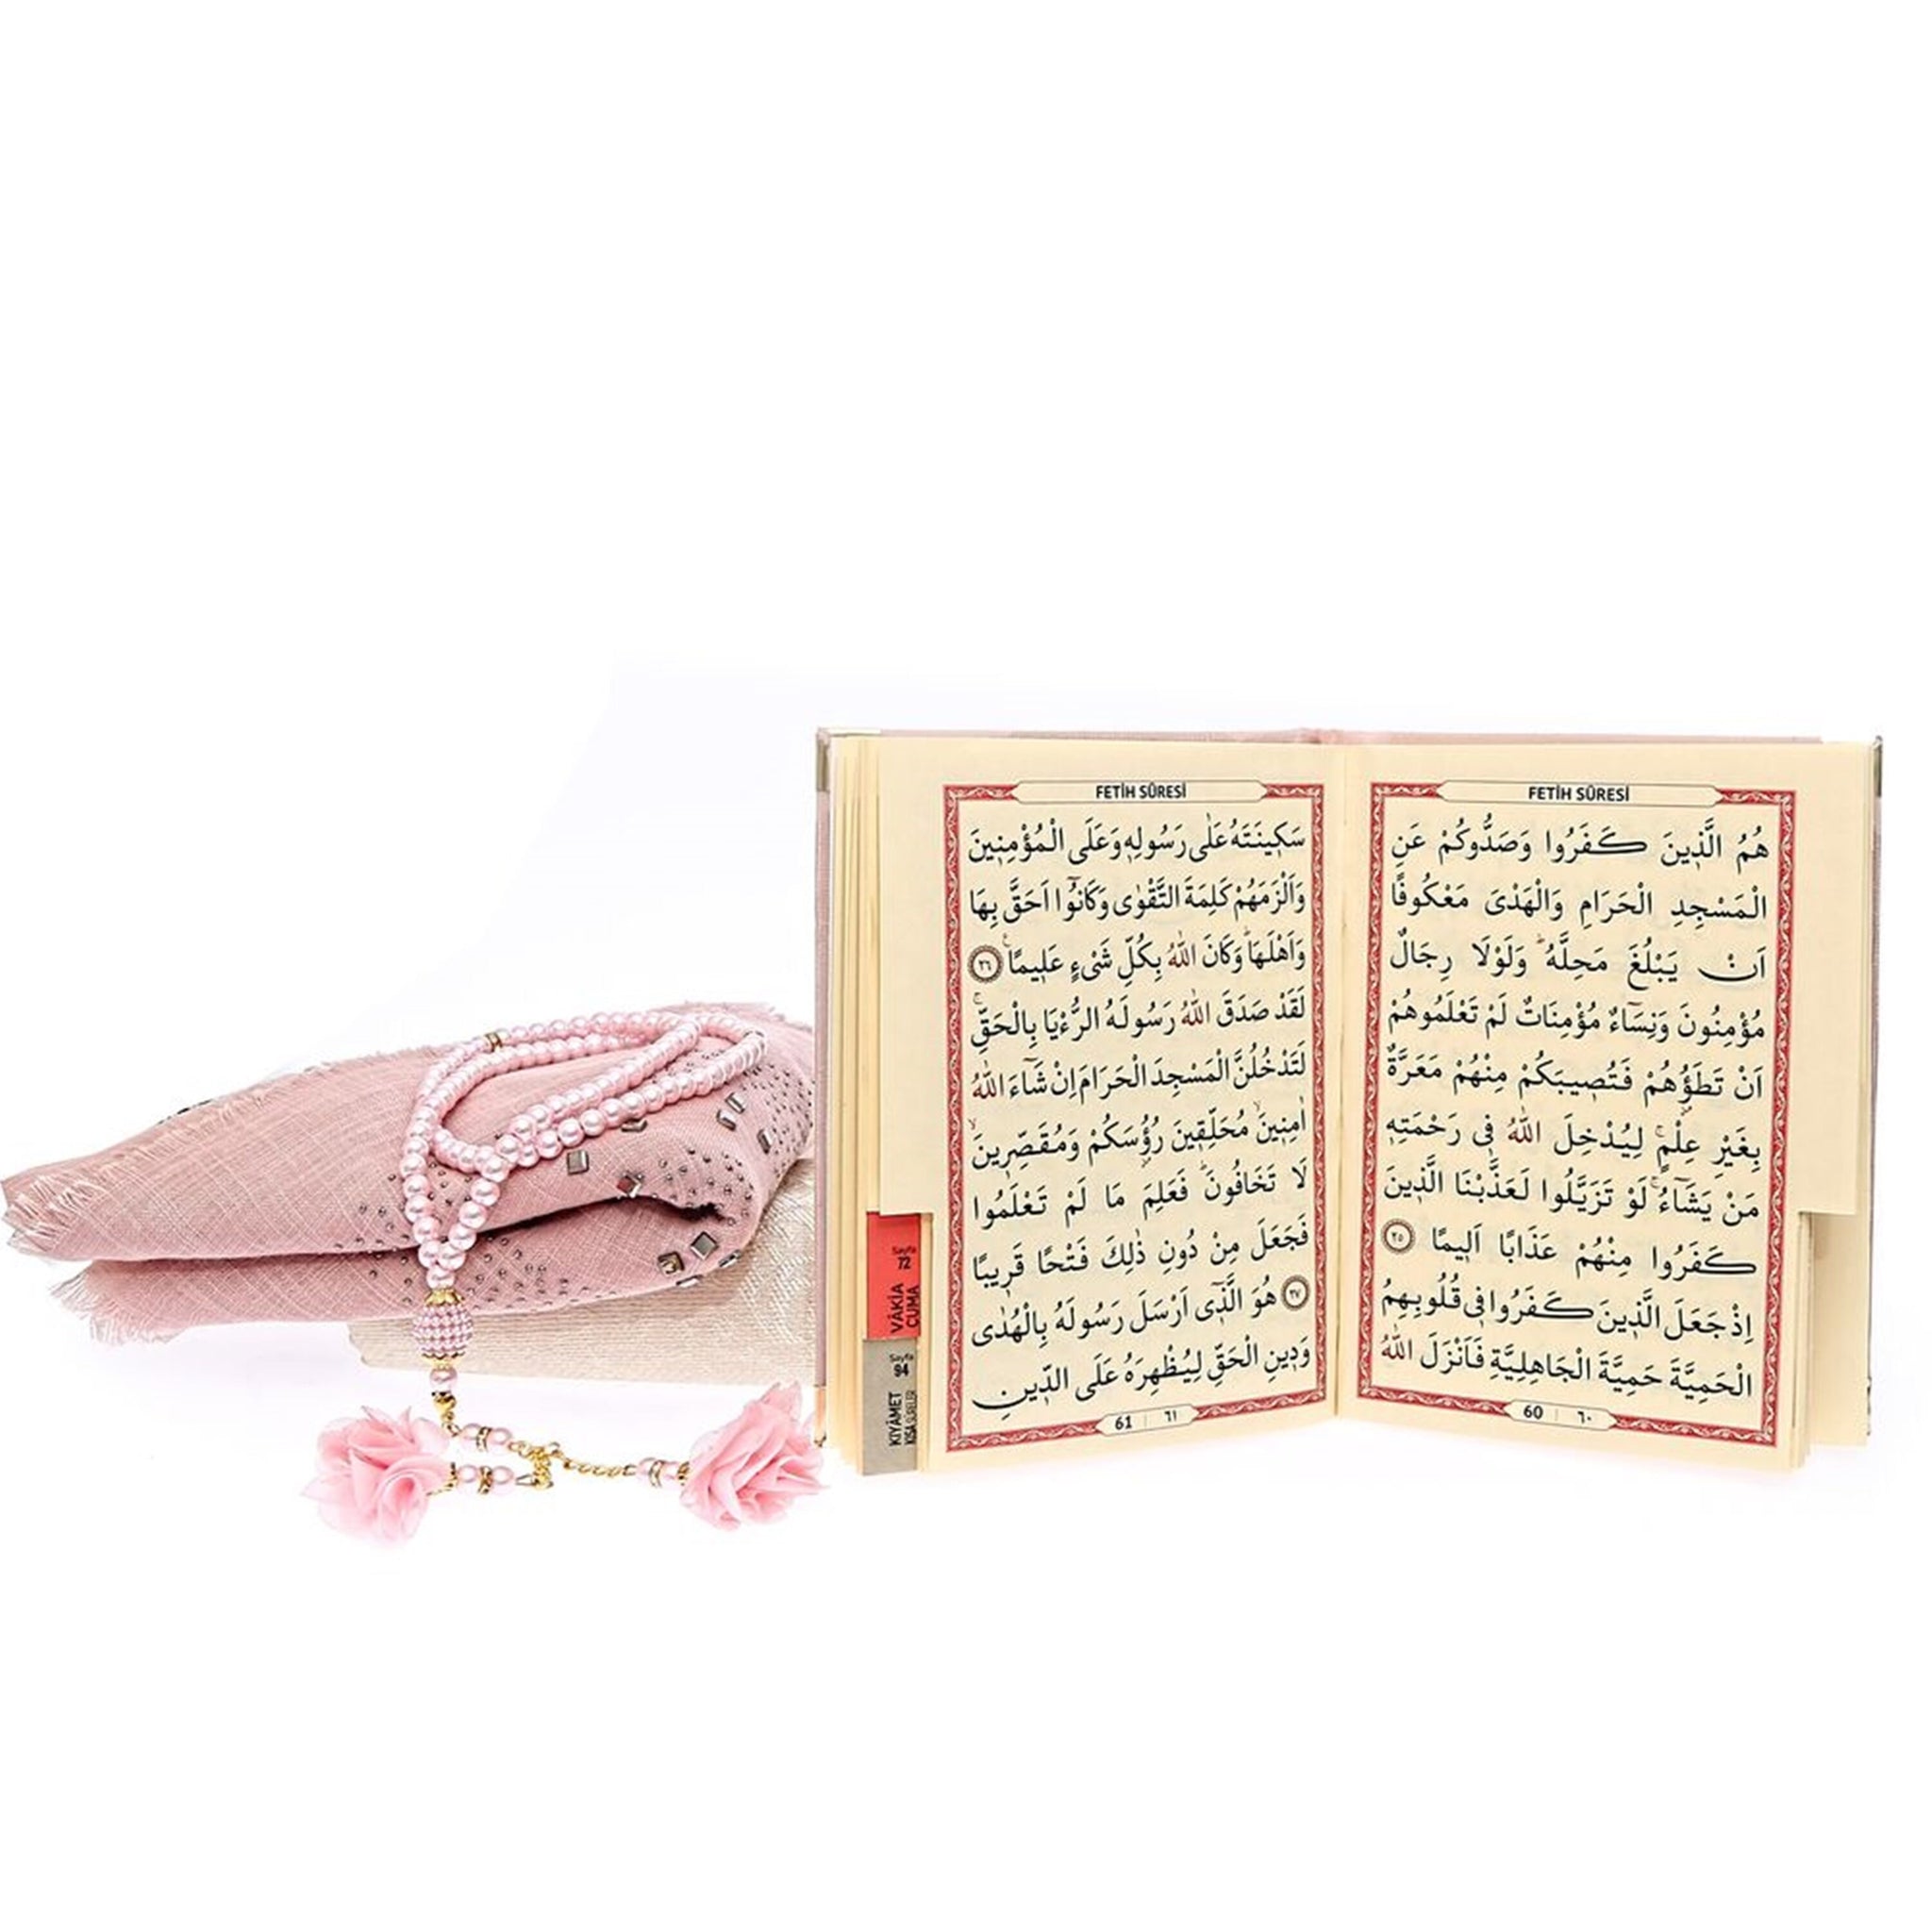 FETİH SÛRESİ
هُمُ الَّذ۪ينَ كَفَرُوا وَصَدُّوكُمْ عَنِ
الْمَسْجِدِ الْحَرَامِ وَالْهَدْىَ مَعْكُوفًا
اَنْ يَبْلُغَ مَحِلَّهُۜ وَلَوْلَا رِجَالٌ
مُؤْمِنُونَ وَنِسَٓاءٌ مُؤْمِنَاتٌ لَمْ تَعْلَمُوهُمْ
اَنْ تَطَؤُ۫هُمْ فَتُص۪يبَكُمْ مِنْهُمْ مَعَرَّةٌ
بِغَيْرِ عِلْمٍۚ لِيُدْخِلَ اللّٰهُ ف۪ى رَحْمَتِه۪
مَنْ يَشَٓاءُۚ لَوْ تَزَيَّلُوا لَعَذَّبْنَا الَّذ۪ينَ
كَفَرُوا مِنْهُمْ عَذَابًا اَل۪يمًا ٢٥
اِذْ جَعَلَ الَّذ۪ينَ كَفَرُوا ف۪ى قُلُوبِهِمُ
الْحَمِيَّةَ حَمِيَّةَ الْجَاهِلِيَّةِ فَاَنْزَلَ اللّٰهُ
60 ٦٠
FETİH SÛRESİ
سَك۪ينَتَهُ عَلٰى رَسُولِه۪ وَعَلَى الْمُؤْمِن۪ينَ
وَاَلْزَمَهُمْ كَلِمَةَ التَّقْوٰى وَكَانُٓوا اَحَقَّ بِهَا
وَاَهْلَهَاۜ وَكَانَ اللّٰهُ بِكُلِّ شَىْءٍ عَل۪يمًا۟ ٢٦
لَقَدْ صَدَقَ اللّٰهُ رَسُولَهُ الرُّءْيَا بِالْحَقِّۚ
لَتَدْخُلُنَّ الْمَسْجِدَ الْحَرَامَ اِنْ شَٓاءَ اللّٰهُ
اٰمِن۪ينَۙ مُحَلِّق۪ينَ رُؤُ۫سَكُمْ وَمُقَصِّر۪ينَۙ
لَا تَخَافُونَۜ فَعَلِمَ مَا لَمْ تَعْلَمُوا
فَجَعَلَ مِنْ دُونِ ذٰلِكَ فَتْحًا قَر۪يبًا
٢٧ هُوَ الَّذ۪ٓى اَرْسَلَ رَسُولَهُ بِالْهُدٰى
وَد۪ينِ الْحَقِّ لِيُظْهِرَهُ عَلَى الدّ۪ينِ
61 ٦١
Sayfa
72
VÂKİA
CUMA
Sayfa
94
KIYÂMET
KISA SÛRELER